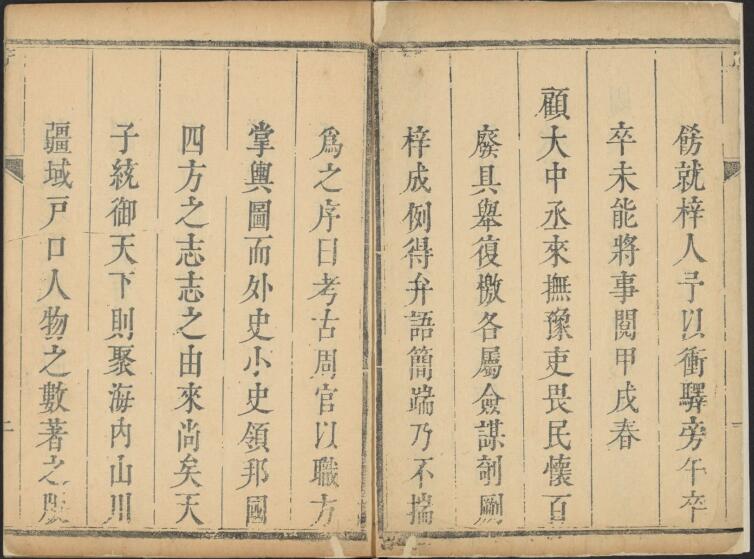 飭就梓人予以衝驛旁午卒
卒未能將事閱甲戌春
顧大中丞來撫豫吏畏民懷百
廢具舉復檄各屬僉謀剞劂
梓成例得弁語簡端乃不揣
為之序曰考古周官以職方
掌輿圖而外史小史領邦國
四方之志志之由來尚矣天
子統御天下則聚海内山川
疆域戸口人物之數著之版